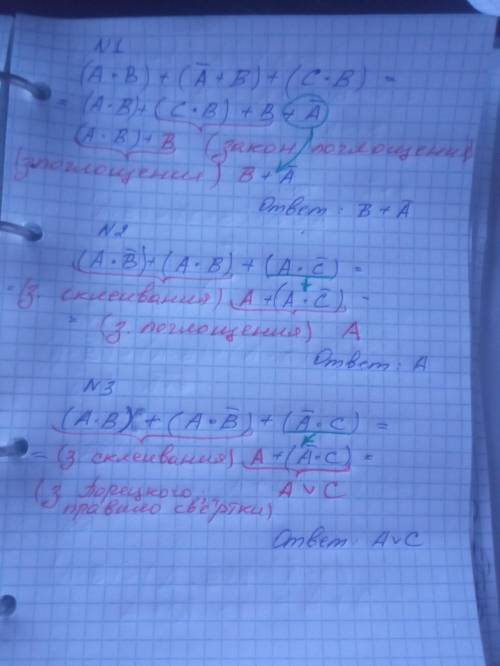 N1
(A·B) + (Ā + B) + (C·B) =
= (A·B) + (C·B) + B + Ā
(A·B) + B (закон поглощения)
(з. поглощения) B + Ā
Ответ: B + Ā
N2
(A·B̄) + (A·B) + (A·C̄) =
= (з. склеивания) A + (A·C̄) =
= (з. поглощения) A
Ответ: A
N3
(A·B) + (A·B̄) + (Ā·C) =
= (з. склеивания) A + (Ā·C) =
(з. Порецкого, A v C
правило свёртки)
Ответ: A v C